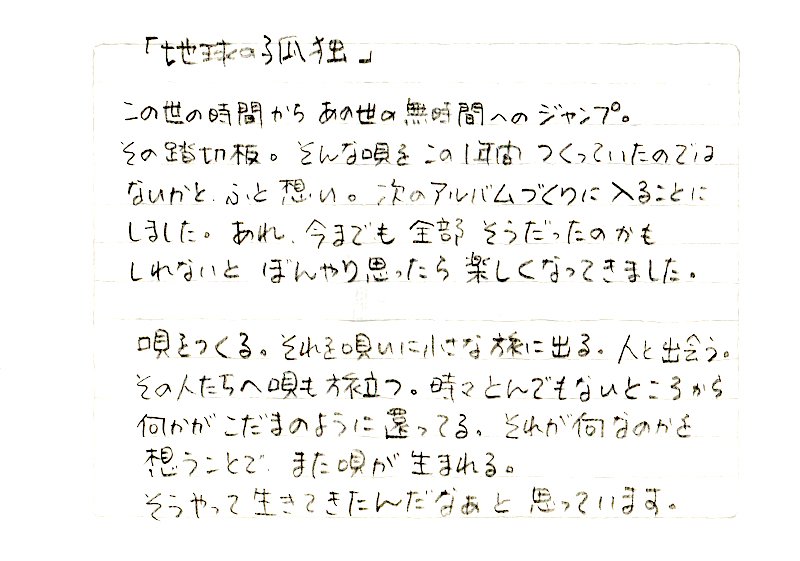 「地球の孤独」
この世の時間から あの世の無時間への ジャンプ。
その踏切板。そんな唄を この1年間 つくっていたのでは
ないかと、ふと想い。次のアルバムづくりに入ることに
しました。あれ、今までも 全部 そうだったのかも
しれないと ぼんやり思ったら 楽しくなってきました。
唄をつくる。それを唄いに小さな旅に出る。人と出会う。
その人たちへ唄も旅立つ。時々とんでもないところから
何かがこだまのように還ってる。それが何なのかを
想うことで、また唄が生まれる。
そうやって生きてきたんだなぁと 思っています。